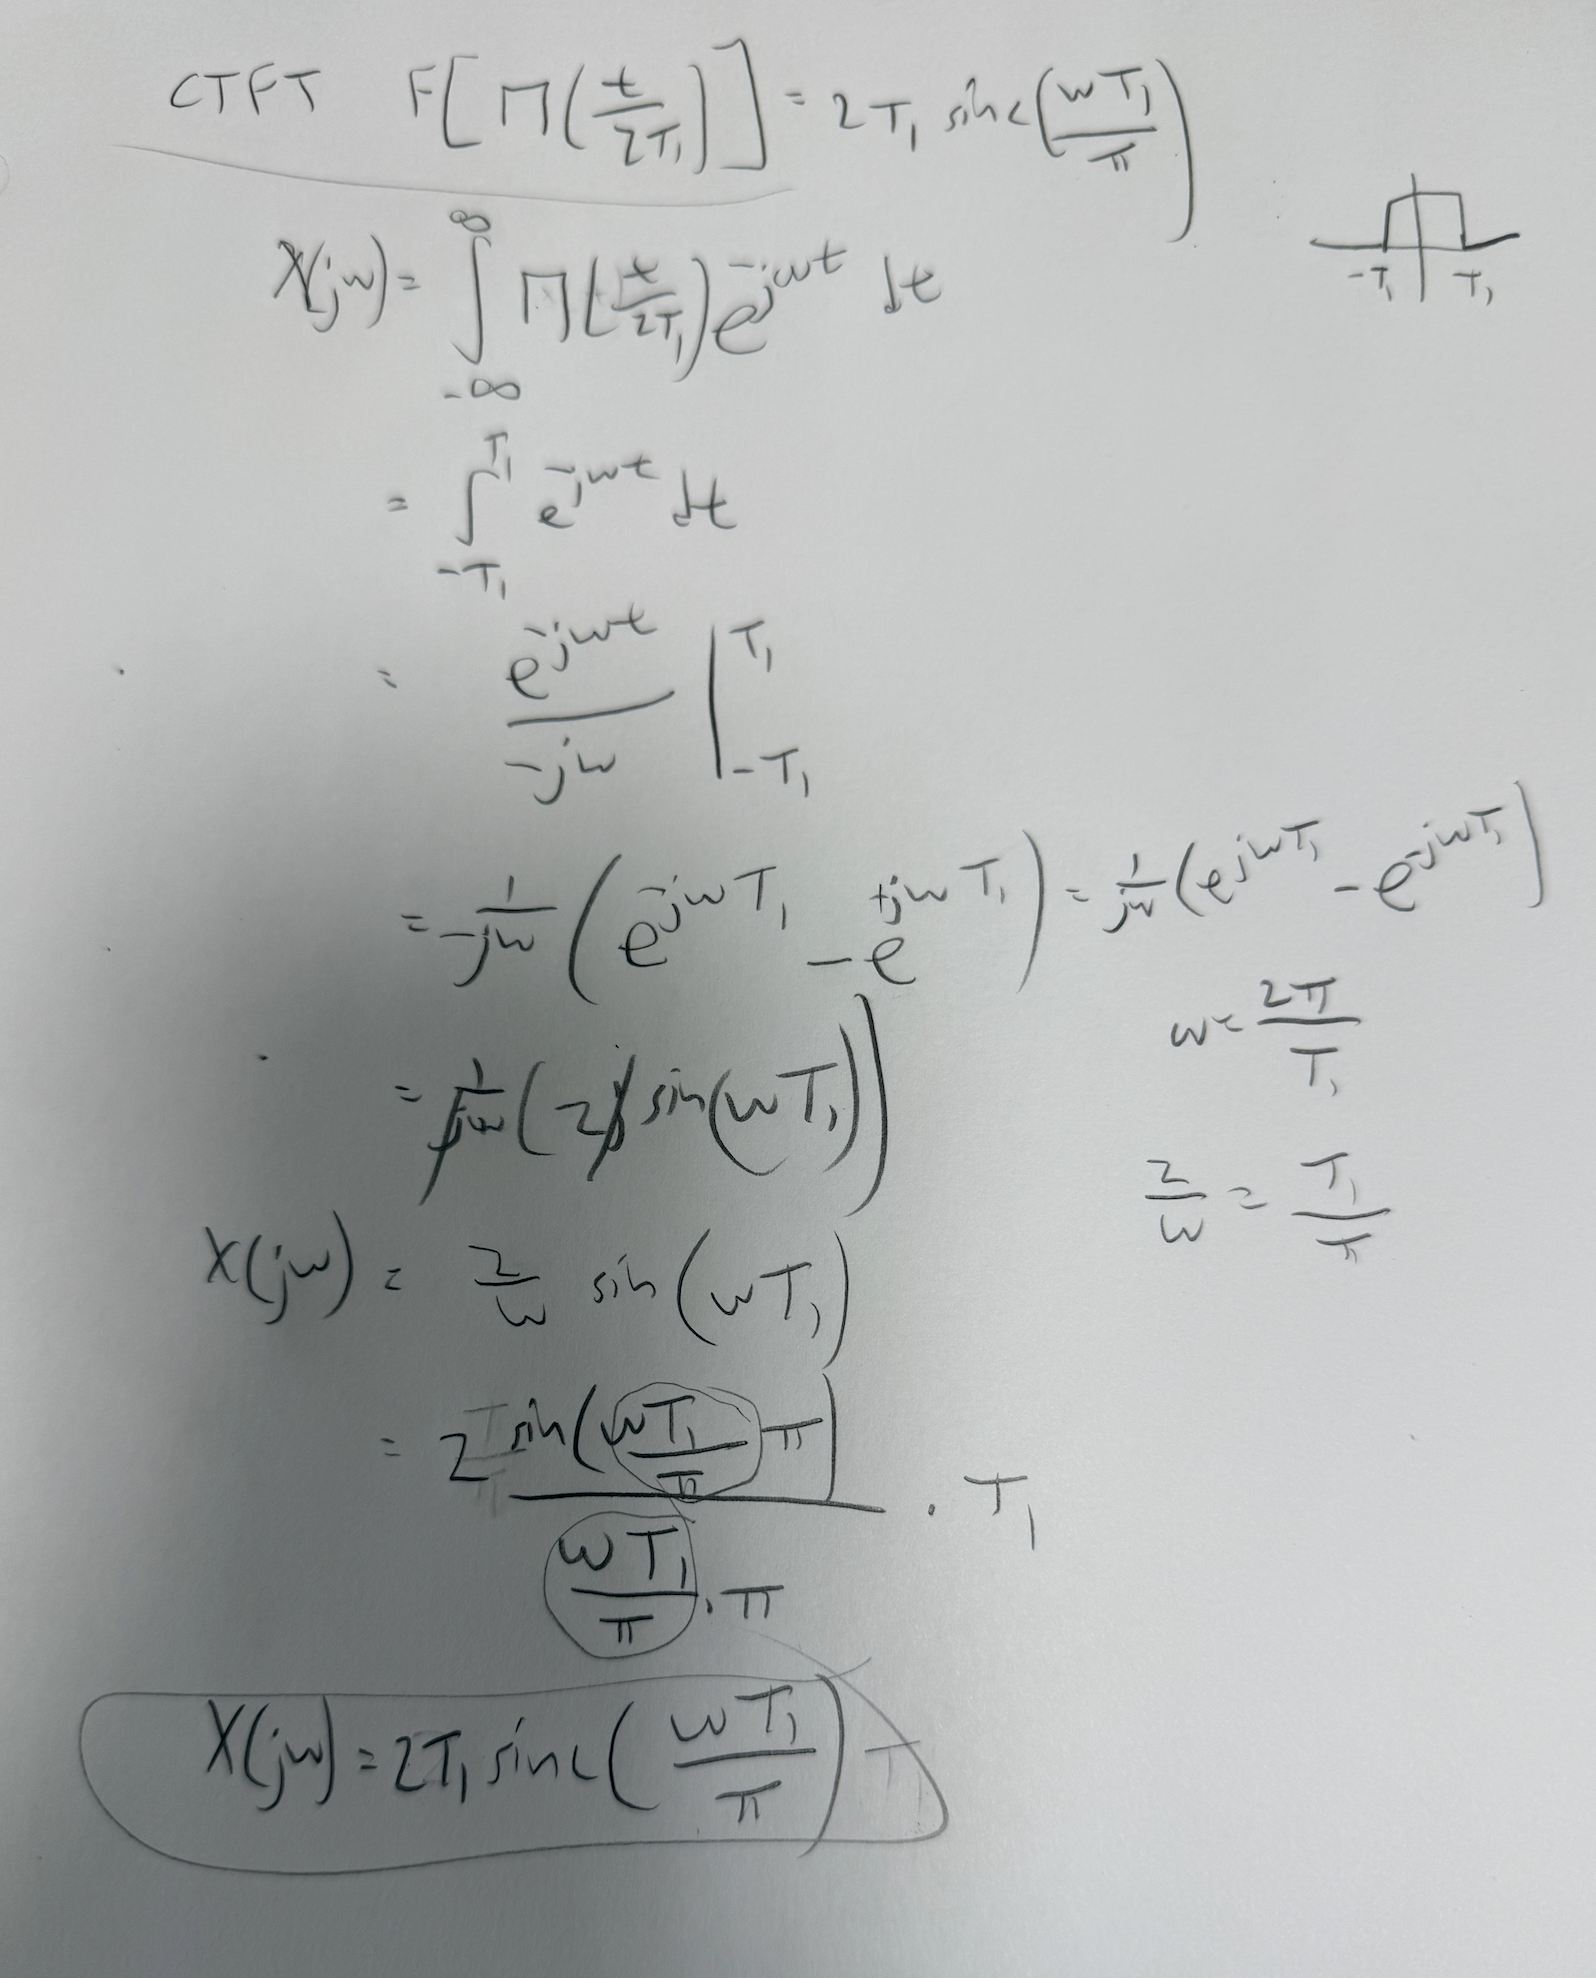 CTFT F[Π(t/2T₁)] = 2T₁ sinc(wT₁/π)
-T₁ T₁
X(jw) = ∫_{-∞}^{∞} Π(t/2T₁) e^{-jwt} dt
= ∫_{-T₁}^{T₁} e^{-jwt} dt
= e^{-jwt}/-jw |_{-T₁}^{T₁}
= 1/-jw (e^{-jwT₁} - e^{+jwT₁}) = 1/jw (e^{jwT₁} - e^{-jwT₁})
w = 2π/T₁
= 1/jw (2j sin(wT₁))
2/w = T₁/π
X(jw) = 2/w sin(wT₁)
= 2 sin(wT₁/π π) / (wT₁/π · π) · T₁
X(jw) = 2T₁ sinc(wT₁/π)